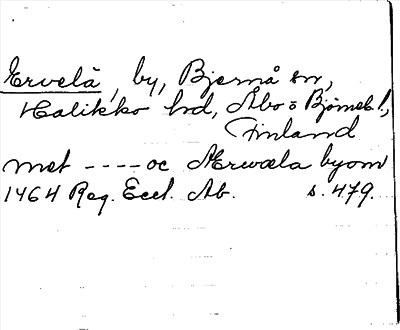 Ervelä, by, Bjernå sn,
Halikko hd, Åbo o Björneb. l.,
Finland
met ---- oc Ærwæla byom
1464 Reg. Eccl. Ab. s. 479.